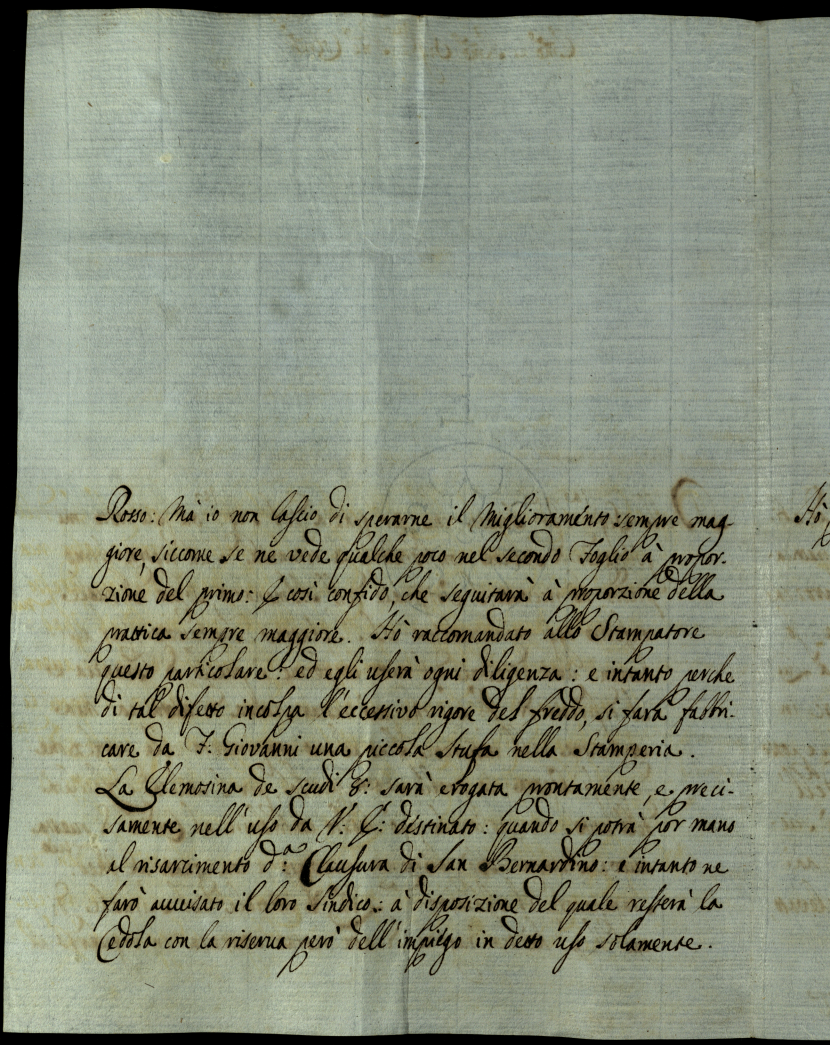 Rosso: Mà io non lascio di sperarne il Miglioramento sempre mag-
giore, siccome se ne vede qualche poco nel secondo Foglio à propor-
zione del primo: E così confido, che seguitarà à proporzione della
prattica sempre maggiore. Hò raccomandato allo Stampatore
questo particolare: ed egli userà ogni diligenza: e intanto perche
di tal difetto incolpa l'eccessivo rigore del freddo, si farà fabbri-
care da F. Giovanni una piccola Stufa nella Stamperia.
La Elemosina de scudi 8: sarà erogata prontamente, e preci-
samente nell'uso da V: E: distinato: quando si potrà por mano
al risarcimento d.ª Clausura di San Bernardino: e intanto ne
farò auuisato il loro Sindico: à disposizione del quale resterà la
Cedola con la riserua però dell'impiego in detto uso solamente.
Hò